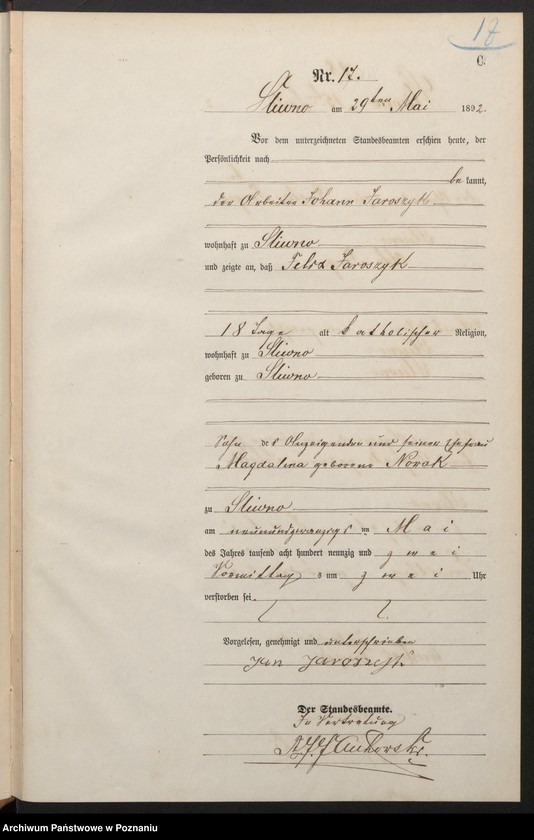 17
C.
Nr. 17.
Sliwno am 29ten Mai 1892.
Vor dem unterzeichneten Standesbeamten erschien heute, der
Persönlichkeit nach
be kannt,
der Arbeiter Johann Jaroszyk
wohnhaft zu Sliwno
und zeigte an, daß Felix Jaroszyk
18 Tage alt katholischer Religion,
wohnhaft zu Sliwno
geboren zu Sliwno
Sohn des Anzeigenden und seiner Ehefrau
Magdalena geborene Nowak
zu Sliwno
am neunundzwanzigs ten Mai
des Jahres tausend acht hundert neunzig und zwei
Vormittags um zwei Uhr
verstorben sei.
Vorgelesen, genehmigt und unterschrieben
Jan
Der Standesbeamte.
In Vertretung
Archiwum Państwowe w Poznaniu